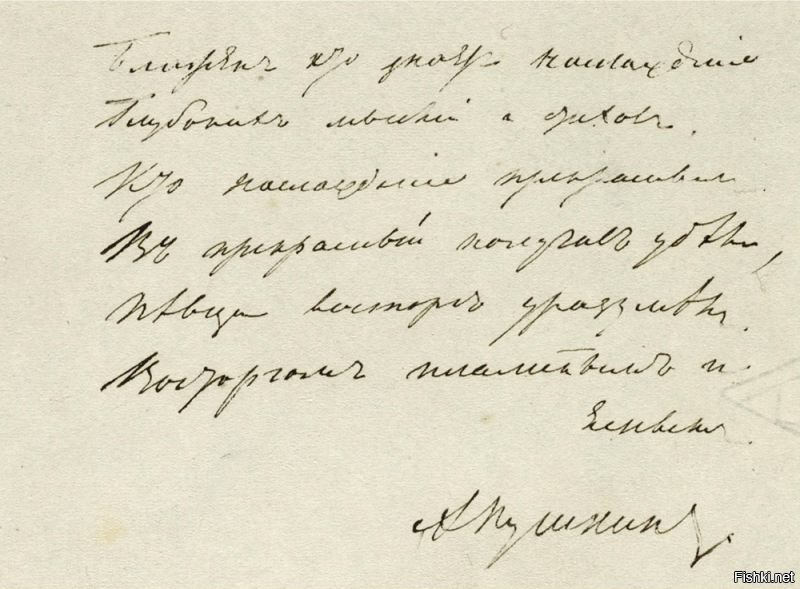 Блаженъ кто знаетъ наслажденіе
Глубокихъ мыслей и стиховъ.
Кто наслажденіе прекраснымъ
Въ прекрасный получилъ удѣлъ,
Пѣвца восторгъ уразумѣлъ
Восторгомъ пламеннымъ и
яснымъ
А Пушкинъ.
Fishki.net